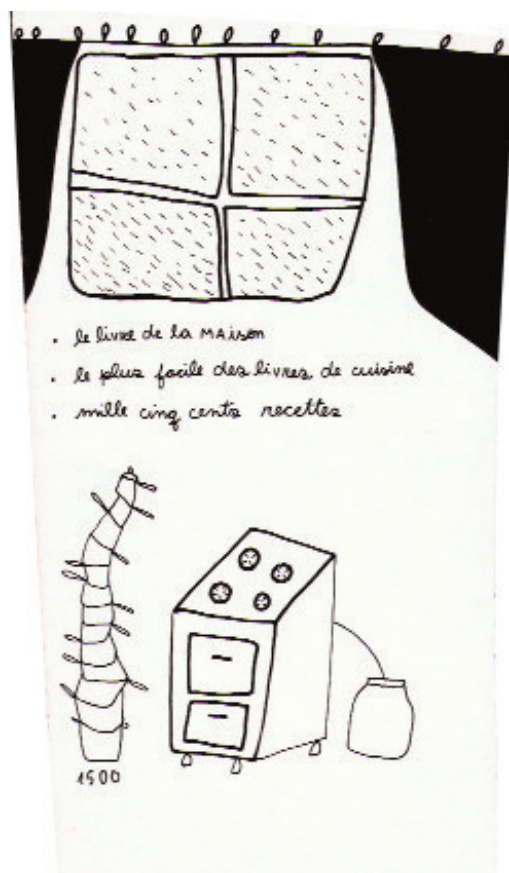 . le livre de la MAison
. le plus facile des livres de cuisine
. mille cinq cents recettes
1500